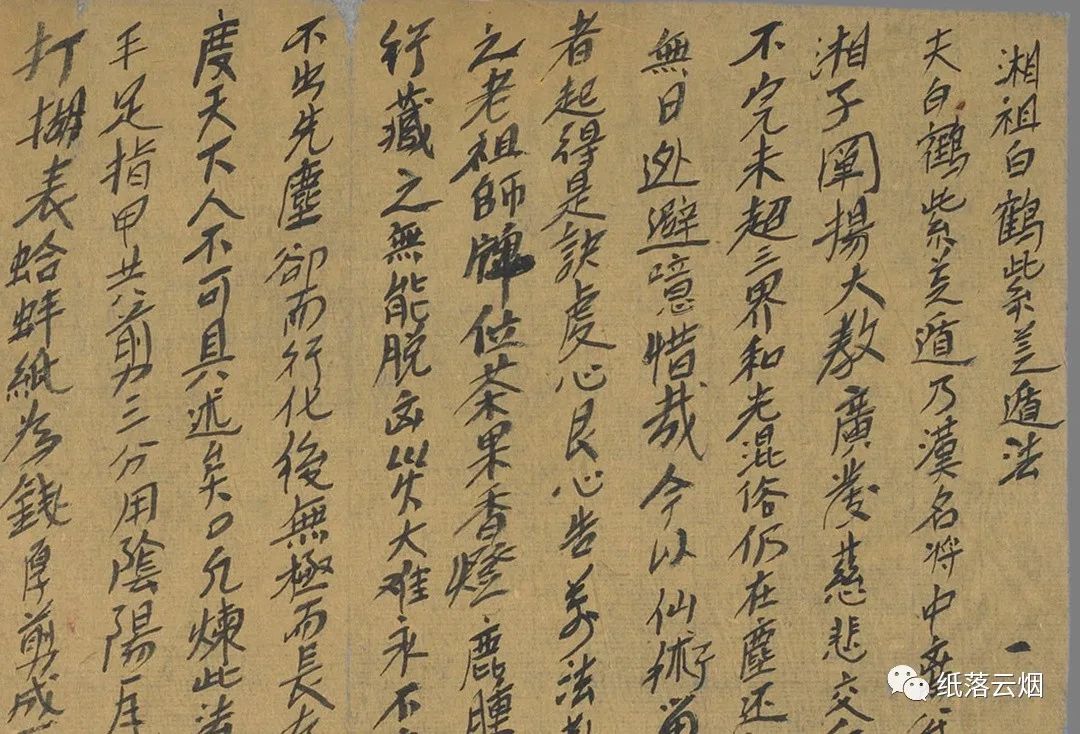 湘祖白鶴紫芝遁法 一
夫白鶴紫芝遁乃漢名將中
湘子闡揚大教廣發慈悲交
不完未超三界和光混俗仍在塵还
無日迯避噫惜哉今以仙術
者起得是訣虔心艮心告 法
之老祖師牌位茶果香燈鹿
行藏之無能脫 大难永不
不出先塵卻而行化後無極而長
度天下人不可具述矣〇凡煉此
手足指甲共剪三分用陰陽
打糊表蛤蚌紙為錢厚剪成
纸落云烟